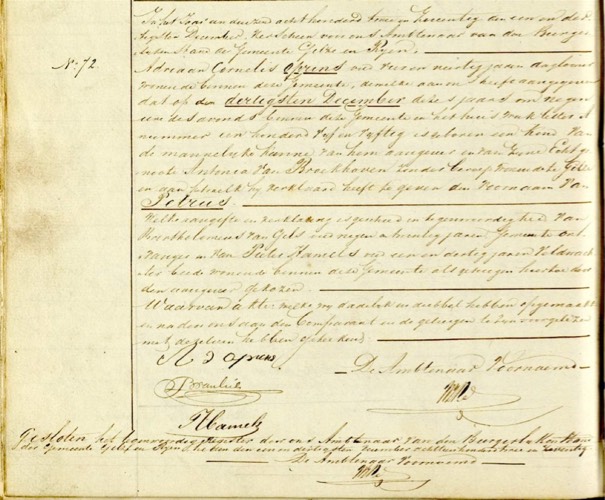 In het Jaar een duizend acht honderd twee en Zeventig den een en der
tigsten December, verscheen voor ons Ambtenaar van den Burger
lijken Stand der Gemeente Gilze en Rijen
No. 72
Adriaan Cornelis oud vier en dertig jaren daglooner
wonende binnen deze Gemeente, denwelke aan ons heeft aangegeven
dat op den dertigsten December dezes jaars om negen
ure des avonds binnen deze Gemeente en het huis Wijk letter A
nummer een honderd vijf en vijftig is geboren een kind van
de mannelijke kunne van hem aangever en van zijne Echtge
noote Antonia Van Broekhoven zonder beroep wonende te Gilze
en aan hetwelk hij verklaard heeft te geven den Voornaam van
Petrus
Welke aangifte en verklaring is geschied in tegenwoordigheid van
Bartholomeus van Gils oud negen en jaren Gemeente ont
vanger en van Pieter Hamels oud een en dertig jaren Veldwach
ter beide wonende binnen deze Gemeente als getuigen hiertoe door
den aangever gekozen.
Waarvan akte: welke wij dadelijk in dubbel hebben opgemaakt
en na den ons aan den Comparant en de getuigen te zijn voorgelezen
met dezelven hebben onderteekend.
De Ambtenaar Voornoemd
P Hamels
Gesloten het tegenwoordig register door ons Ambtenaar van den Burgerlijken Stand
der Gemeente Gilze en Rijen den een en dertigsten December achttienhonderd twee en Zeventig
De Ambtenaar Voornoemd